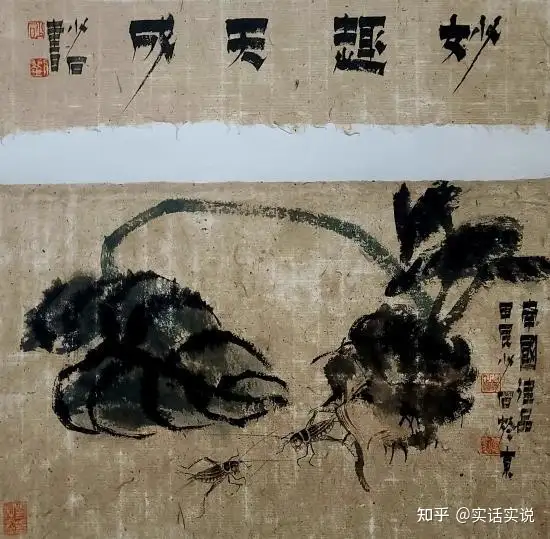 妙趣天成
少石書
南國品
甲辰少石於京
知乎 @实话实说